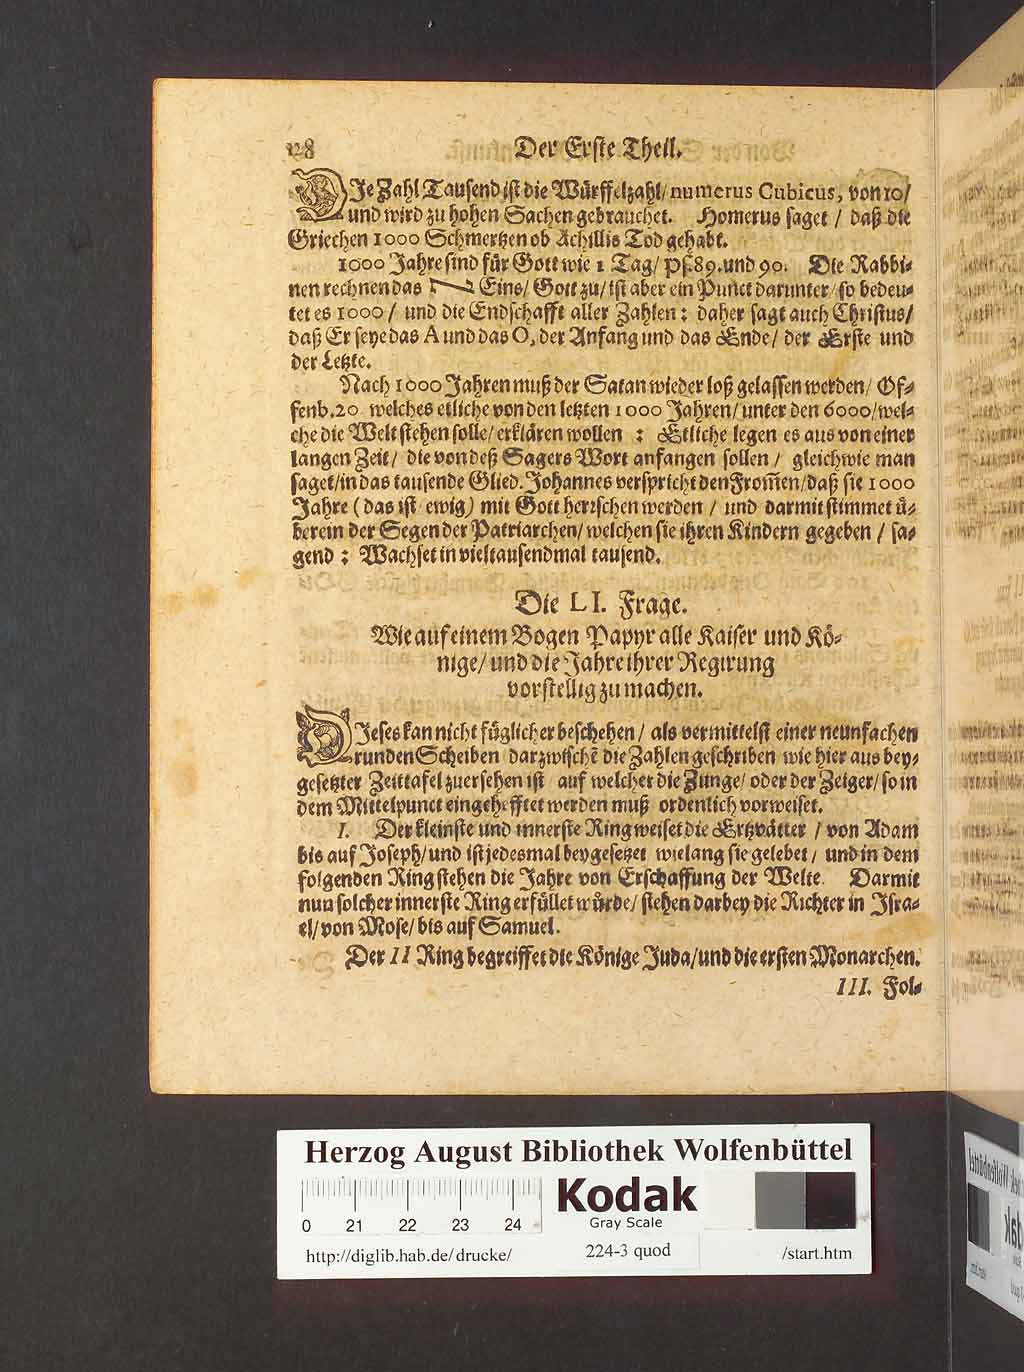 128 Der Erste Theil.
DIe Zahl Tausend ist die Würffelzahl/ numerus Cubicus, von 10/
und wird zu hohen Sachen gebrauchet. Homerus saget / daß die
Griechen 1000 Schmertzen ob Achillis Tod gehabt.
1000 Jahre sind für Gott wie 1 Tag/ Ps.89. und 90. Die Rabbi-
nen rechnen das Eins/ Gott zu/ ist aber ein Punct darunter/ so bedeu-
tet es 1000 / und die Endschafft aller Zahlen: daher sagt auch Christus/
daß Er seye das A und das O, der Anfang und das Ende/ der Erste und
der Letzte.
Nach 1000 Jahren muß der Satan wieder loß gelassen werden/ Of-
fenb.20 welches etliche von den letzten 1000 Jahren/ unter den 6000/wel-
che die Welt stehen solle/ erklären wollen : Etliche legen es aus von einer
langen Zeit/ die von deß Sagers Wort anfangen sollen / gleichwie man
saget/in das tausende Glied. Johannes verspricht den From̃en/daß sie 1000
Jahre (das ist ewig) mit Gott herrschen werden / und darmit stimmet ü-
berein der Segen der Patriarchen/ welchen sie ihren Kindern gegeben / sa-
gend : Wachset in vieltausendmal tausend.
Die LI. Frage.
Wie auf einem Bogen Papyr alle Kaiser und Kö-
nige/ und die Jahre ihrer Regirung
vorstellig zu machen.
DIeses kan nicht füglicher beschehen / als vermittelst einer neunfachen
runden Scheiben darzwischẽ die Zahlen geschriben wie hier aus bey-
gesetzter Zeittafel zuersehen ist auf welcher die Zunge/ oder der Zeiger/ so in
dem Mittelpunct eingehefftet werden muß ordentlich vorweiset.
I. Der kleinste und innerste Ring weiset die Ertzvätter / von Adam
bis auf Joseph/ und ist jedesmal beygesetzet wie lang sie gelebet / und in dem
folgenden Ring stehen die Jahre von Erschaffung der Welte. Darmit
nun solcher innerste Ring erfüllet würde/ stehen darbey die Richter in Isra-
el/ von Mose/ bis auf Samuel.
Der II Ring begreiffet die Könige Juda/ und die ersten Monarchen.
III. Fol-
Herzog August Bibliothek Wolfenbüttel
0 21 22 23 24
Kodak
Gray Scale
http://diglib.hab.de/drucke/ 224-3 quod /start.htm